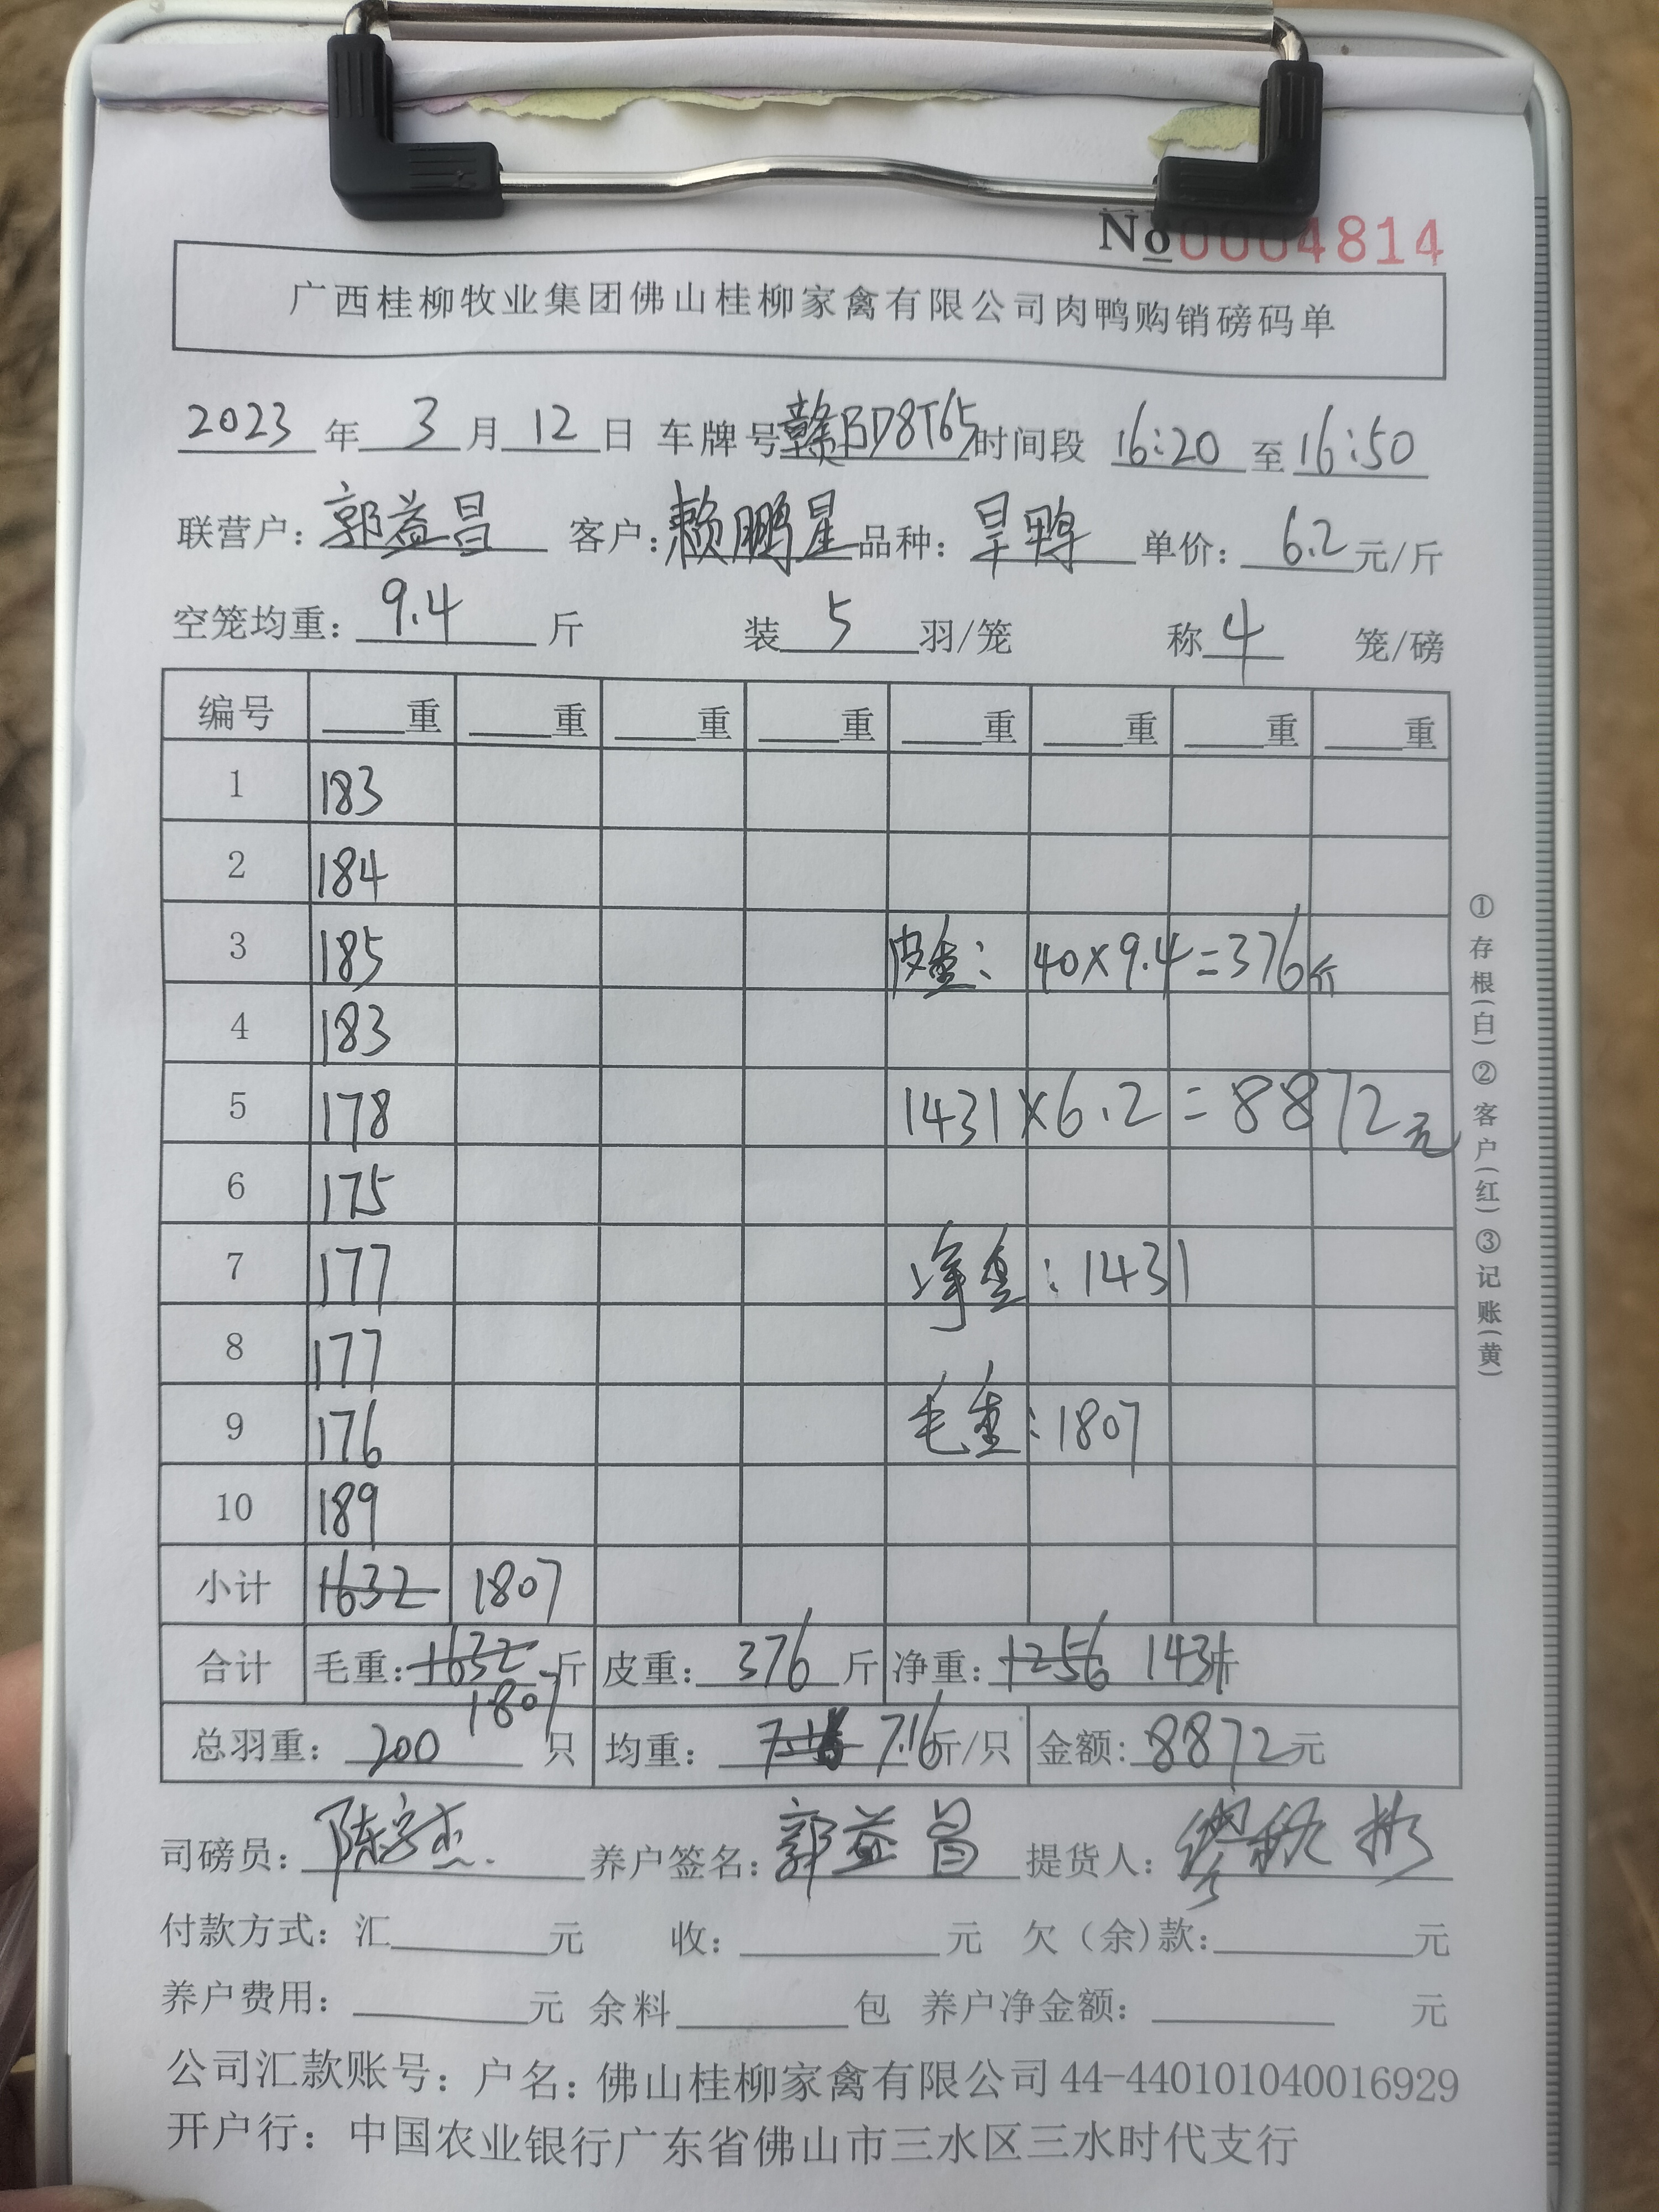 No0004814
广西桂柳牧业集团佛山桂柳家禽有限公司肉鸭购销磅码单
2023年3月12日 车牌号赣BD8T65时间段 16:20至16:50
联营户:郭益昌 客户:赖鹏星 品种:旱鸭 单价:6.2元/斤
空笼均重:9.4斤 装5羽/笼 称4笼/磅
编号 重 重 重 重 重 重 重 重
1 183
2 184
3 185 皮重: 40×9.4=376斤
4 183
5 178 1431×6.2=8872元
6 175
7 177 净重:1431
8 177
9 176 毛重:1807
10 189
小计 1632 1807
合计 毛重:1632 1807斤 皮重:376斤 净重:1256 1431斤
总羽重:200只 均重:7.16斤/只 金额:8872元
司磅员:陈 养户签名:郭益昌 提货人:
付款方式:汇 元 收: 元 欠(余)款: 元
养户费用: 元 余料 包 养户净金额: 元
公司汇款账号:户名:佛山桂柳家禽有限公司44-440101040016929
开户行:中国农业银行广东省佛山市三水区三水时代支行
①存根(白)②客户(红)③记账(黄)